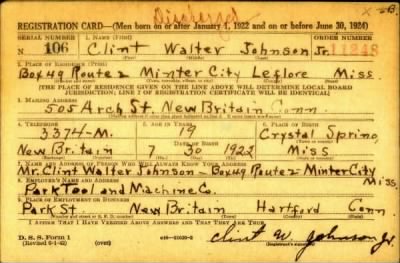 Discharged
REGISTRATION CARD—(Men born on or after January 1, 1922 and on or before June 30, 1924)
SERIAL NUMBER 1. NAME (Print) ORDER NUMBER
N 106 Clint Walter Johnson Jr. 11248
2. PLACE OF RESIDENCE (Print)
Box 49 Route 2 Minter City Leflore Miss.
[THE PLACE OF RESIDENCE GIVEN ON THE LINE ABOVE WILL DETERMINE LOCAL BOARD
JURISDICTION; LINE 2 OF REGISTRATION CERTIFICATE WILL BE IDENTICAL]
3. MAILING ADDRESS
505 Arch St. New Britain Conn.
4. TELEPHONE 5. AGE IN YEARS 6. PLACE OF BIRTH
3374-M. 19 Crystal Spring
DATE OF BIRTH
New Britain 7 30 1922 Miss
7. NAME AND ADDRESS OF PERSON WHO WILL ALWAYS KNOW YOUR ADDRESS
Mr. Clint Walter Johnson - Box 49 Route 2 Minter City
8. EMPLOYER'S NAME AND ADDRESS Miss
Park Tool and Machine Co.
9. PLACE OF EMPLOYMENT OR BUSINESS
Park St New Britain Hartford Conn
I AFFIRM THAT I HAVE VERIFIED ABOVE ANSWERS AND THAT THEY ARE TRUE.
D. S. S. Form 1
(Revised 6-1-42) (over) Clint W. Johnson Jr.